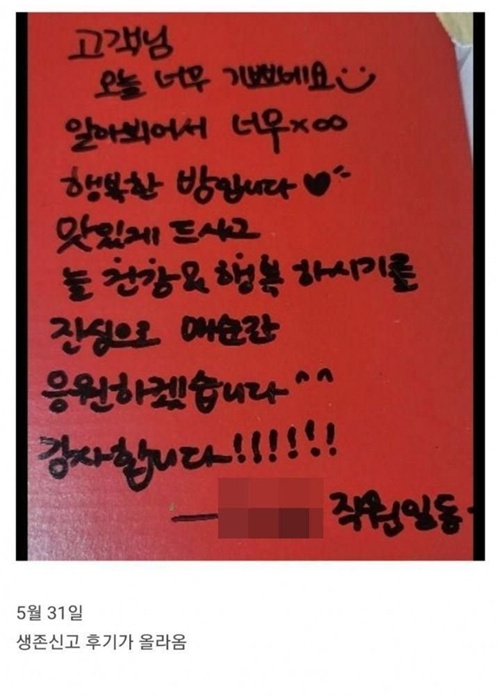 고객님
오늘 너무 기쁘네요
알아뵈어서 너무×∞
행복한 밤입니다♥
맛있게 드시고
늘 건강&행복 하시기를
진심으로 매순간
응원하겠습니다^^
감사합니다!!!!!!
— 직원일동.
5월 31일
생존신고 후기가 올라옴